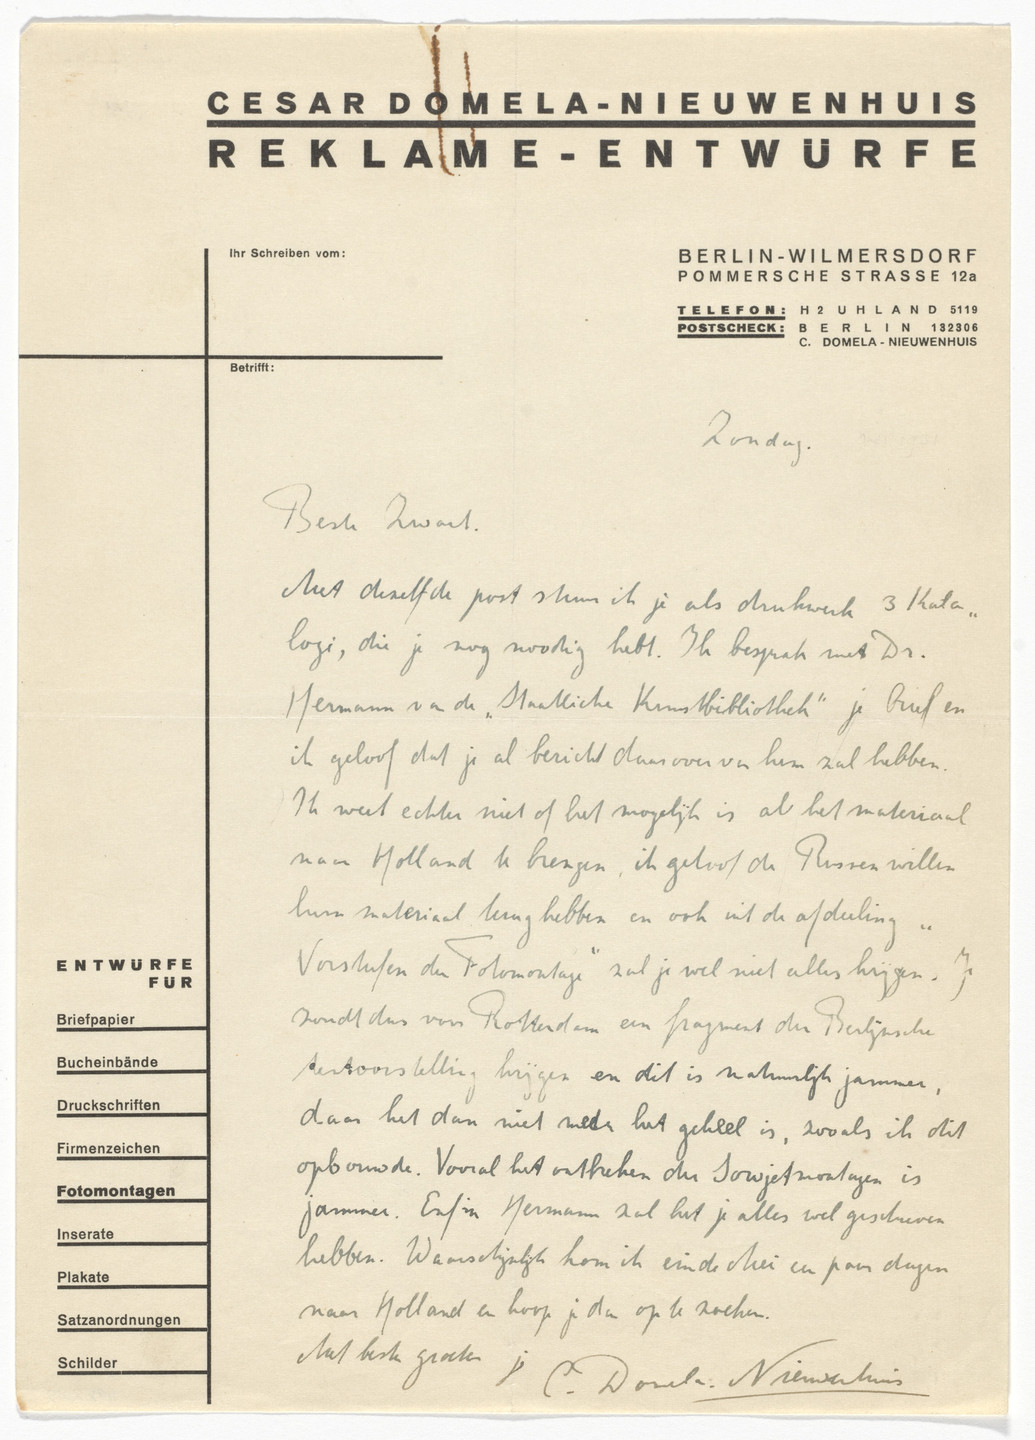 CESAR DOMELA-NIEUWENHUIS
REKLAME-ENTWÜRFE
Ihr Schreiben vom:
BERLIN-WILMERSDORF
POMMERSCHE STRASSE 12a
TELEFON: H2 UHLAND 5119
POSTSCHECK: BERLIN 132306
C. DOMELA-NIEUWENHUIS
Betrifft:
Zondag.
Beste Zwart.
Met dezelfde post stuur ik je als drukwerk 3 Kata„
logi, die je nog noodig hebt. Ik besprak met Dr.
Hermann van de „Staatliche Kunstbibliothek" je brief en
ik geloof dat je al bericht daarover van hem zal hebben.
Ik weet echter niet of het mogelijk is al het materiaal
naar Holland te brengen, ik geloof de Russen willen
hun materiaal terug hebben en ook uit de afdeeling „
Vorstufen der Fotomontage" zal je wel niet alles krijgen. Je
zoudt dus voor Rotterdam een fragment der Berlijnsche
tentoonstelling krijgen en dit is natuurlijk jammer,
daar het dan niet meer het geheel is, zooals ik dit
opbouwde. Vooral het ontbreken der Sowjetmontagen is
jammer. Enfin Hermann zal het je alles wel geschreven
hebben. Waarschijnlijk kom ik einde Mei en paar dagen
naar Holland en hoop je dan op te zoeken.
Met beste groeten je
C. Domela-Nieuwenhuis
ENTWÜRFE
FÜR
Briefpapier
Bucheinbände
Druckschriften
Firmenzeichen
Fotomontagen
Inserate
Plakate
Satzanordnungen
Schilder